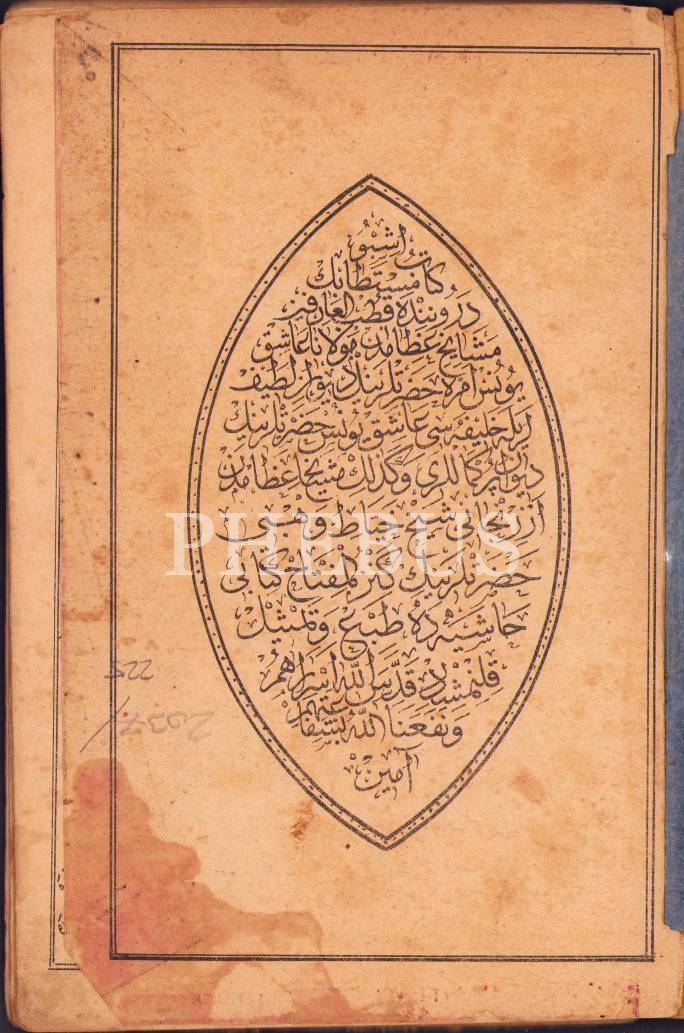 اشبو
كتاب مستطابك
درونده قطب العارفين
مشايخ عظامدن مولانا عاشق
يونس امره حضرتلرينك ديوان لطيف
لريله خليفه سى عاشق يونس حضرتلرينك
ديوان بركماللرى وكذلك مشايخ عظامدن
ازرنجانى شيخ خياط وهبى
حضرتلرينك كنز المفتاح كتابى
حاشيه ده طبع وتمثيل
قلنمشدر قدس الله اسرارهم
ونفعنا الله بشفاعتهم
آمين
PHEBUS
225
2037/